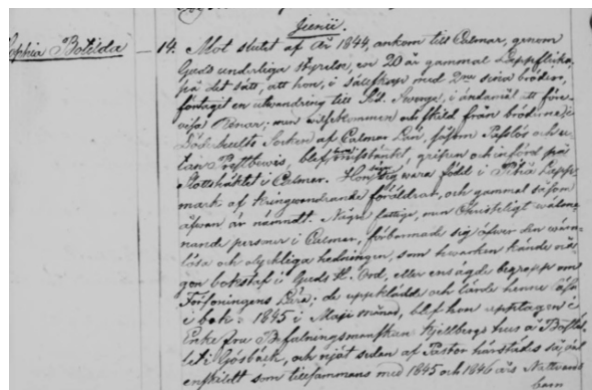 Junii.
Sophia Bothilda — 14. Mot slutet af År 1844, ankom till Calmar, genom
Guds underliga styrelse, en 20 år gammal Lappflicka,
på det sätt, att hon, i sällskap med 2ne sina bröder,
företagit en utvandring till Söd. Sverige, i ändamål att före-
visa Renar; men vilsekommen och skild från bröderne i
Socken af Calmar Län, såsom Passlös och u-
tan Prestbewis, blef gripen och införd på
Slottshäktet i Calmar. Hon sig wara född i Piteå Lapp-
mark af kringwandrande föräldrar, och gammal såsom
ofwan är nämndt. Några fattige, men Christeligt wälme-
nande personer i Calmar, förbarmade sig öfwer den wärn-
lösa och olyckliga hedningen, som hwarken kände nå-
gon bokstaf i Guds H. Ord, eller ens ägde begrepp om
Försoningens Lära; de uppklädde och lärde henne läsa
i bok: 1845 i Maji månad, blef hon upptagen i
Enke Fru Befalningsmanskan Kjellbergs hus å Bostäl-
let Gösbäck, och njöt sedan af Pastor härstädes så wäl
enskildt som tillsammans med 1845 och 1846 års Nattvards
barn